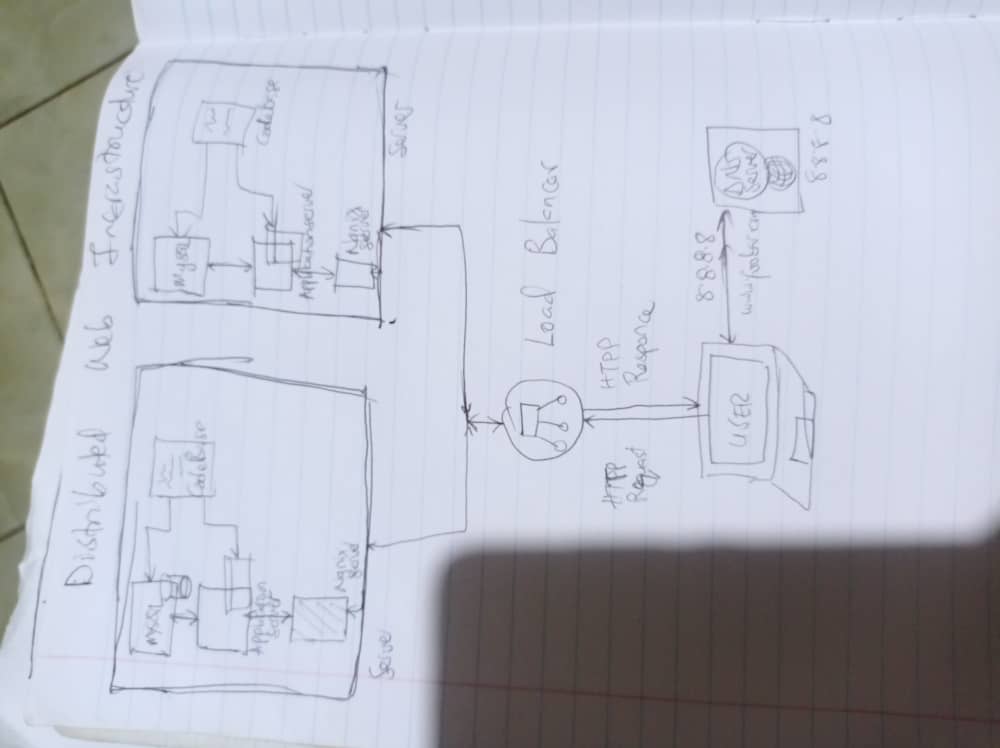 Distributed Web Infrastructure
MySQL
CodeBase
Application
Nginx
Server
Server
MySQL
Codebase
Application server
Nginx
Server
Server
Load Balancer
HTPP
Request
HTPP
Responce
USER
8.8.8.8
DNS
Server
8.8.8.8